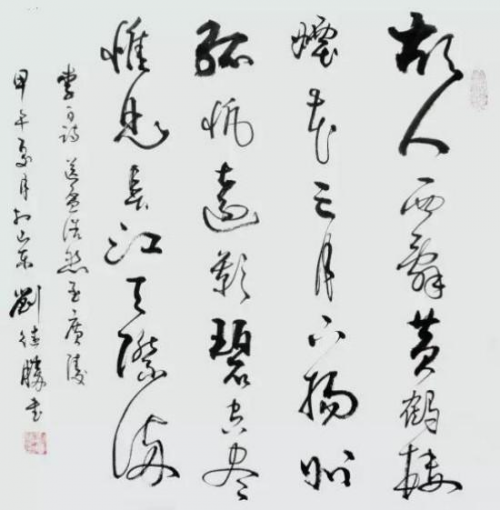 故人西辭黃鶴樓
煙花三月下揚州
孤帆遠影碧空盡
惟見長江天際流
李白詩 送孟浩然至廣陵
甲午夏月於山東 劉德勝書